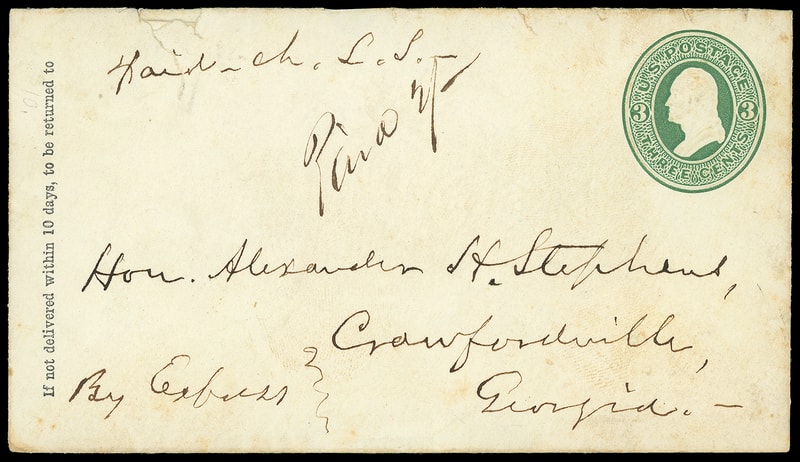 If not delivered within 10 days, to be returned to
Paid – ch. L. S. –
Paid
U.S. POSTAGE
3 3
THREE CENTS
Hon. Alexander H. Stephens,
Crawfordville,
By Express
Georgia. –